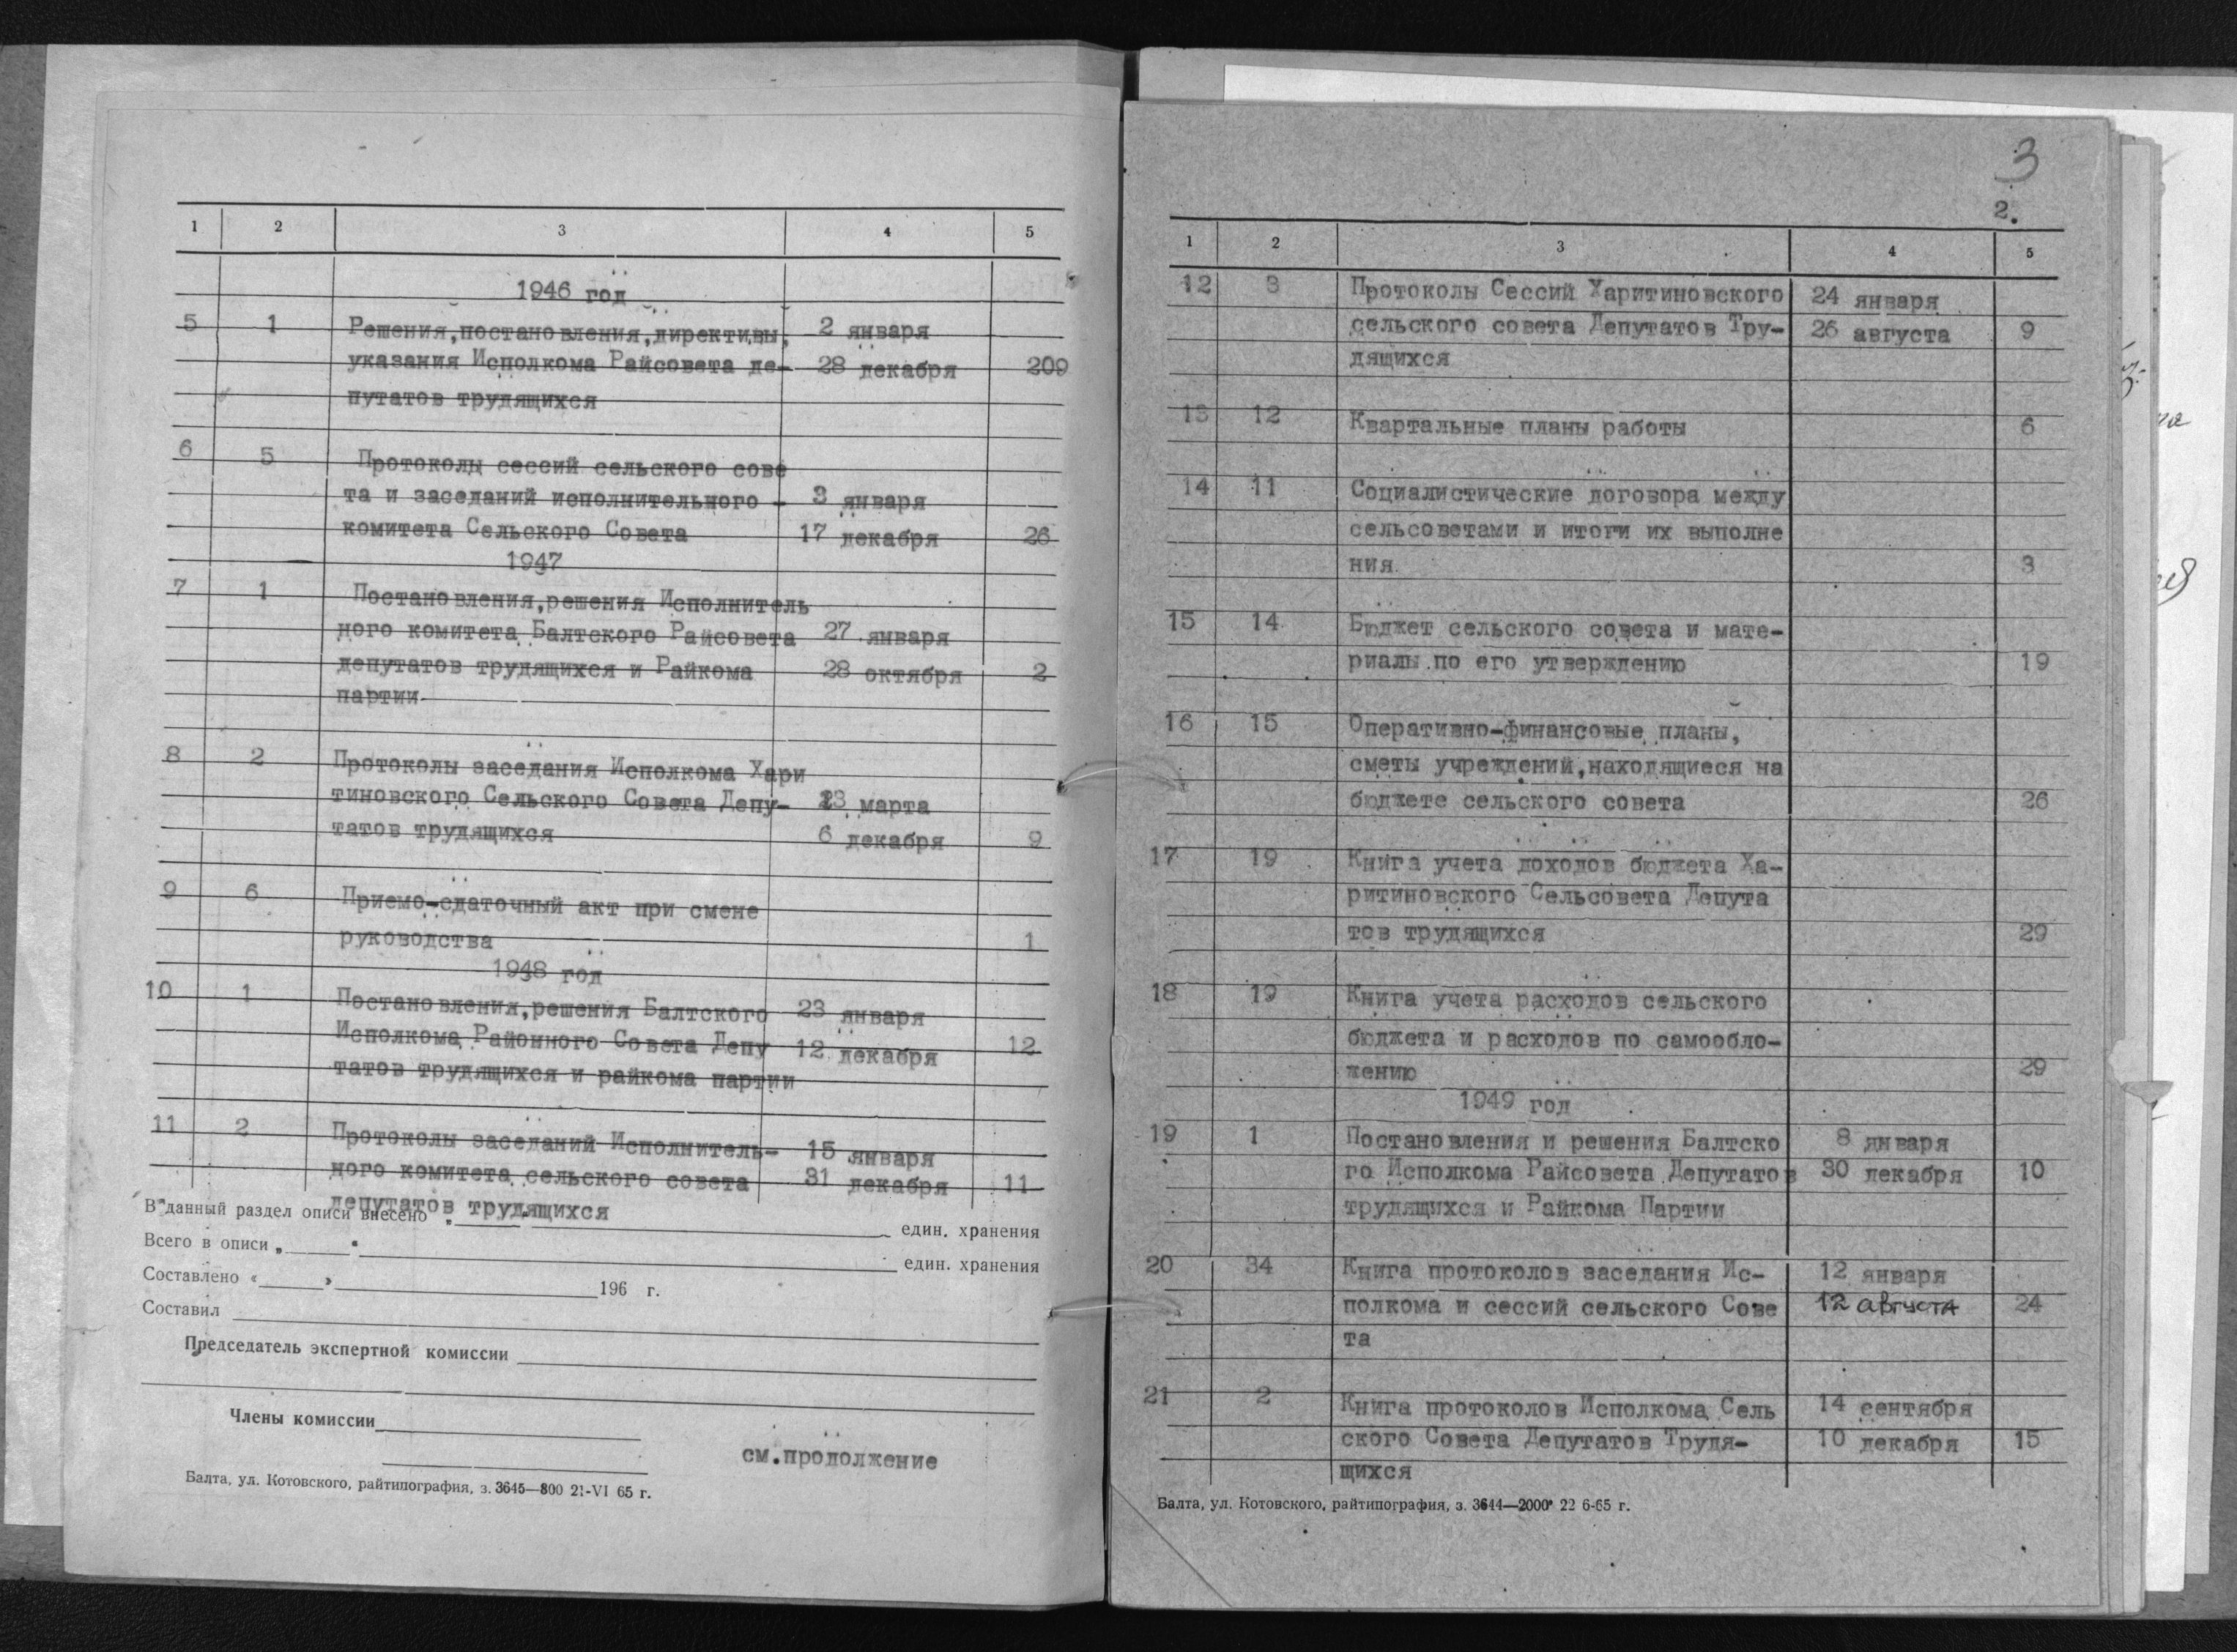 1 2 3 4 5
1946 год
5 1 Решения,постановления,директивы, 2 января
указания Исполкома Райсовета де- 28 декабря 209
путатов трудящихся
6 5 Протоколы сессий сельского сове
та и заседаний исполнительного - 3 января
комитета Сельского Совета 17 декабря 26
1947
7 1 Постановления,решения Исполнитель
ного комитета Балтского Райсовета 27 января
депутатов трудящихся и Райкома 28 октября 2
партии
8 2 Протоколы заседания Исполкома Хари
тиновского Сельского Совета Депу- 23 марта
татов трудящихся 6 декабря 9
9 6 Приемо-сдаточный акт при смене
руководства 1
1948 год
10 1 Постановления,решения Балтского 23 января
Исполкома Районного Совета Депу 12 декабря 12
татов трудящихся и райкома партии
11 2 Протоколы заседаний Исполнитель- 15 января
ного комитета сельского совета 31 декабря 11
депутатов трудящихся
В данный раздел описи внесено „ “ един. хранения
Всего в описи „ “ един. хранения
Составлено « » 196 г.
Составил
Председатель экспертной комиссии
Члены комиссии
см.продолжение
Балта, ул. Котовского, райтипография, з. 3645—800 21-VI 65 г.
3
2.
1 2 3 4 5
12 3 Протоколы Сессий Харитиновского 24 января
сельского совета Депутатов Тру- 26 августа 9
дящихся
13 12 Квартальные планы работы 6
14 11 Социалистические договора между
сельсоветами и итоги их выполне
ния 3
15 14 Бюджет сельского совета и мате-
риалы по его утверждению 19
16 15 Оперативно-финансовые планы,
сметы учреждений,находящиеся на
бюджете сельского совета 26
17 19 Книга учета доходов бюджета Ха-
ритиновского Сельсовета Депута
тов трудящихся 29
18 19 Книга учета расходов сельского
бюджета и расходов по самообло-
жению 29
1949 год
19 1 Постановления и решения Балтско 8 января
го Исполкома Райсовета Депутатов 30 декабря 10
трудящихся и Райкома Партии
20 34 Книга протоколов заседания Ис- 12 января
полкома и сессий сельского Сове 12 августа 24
та
21 2 Книга протоколов Исполкома Сель 14 сентября
ского Совета Депутатов Трудя- 10 декабря 15
щихся
Балта, ул. Котовского, райтипография, з. 3644—2000 22 6-65 г.